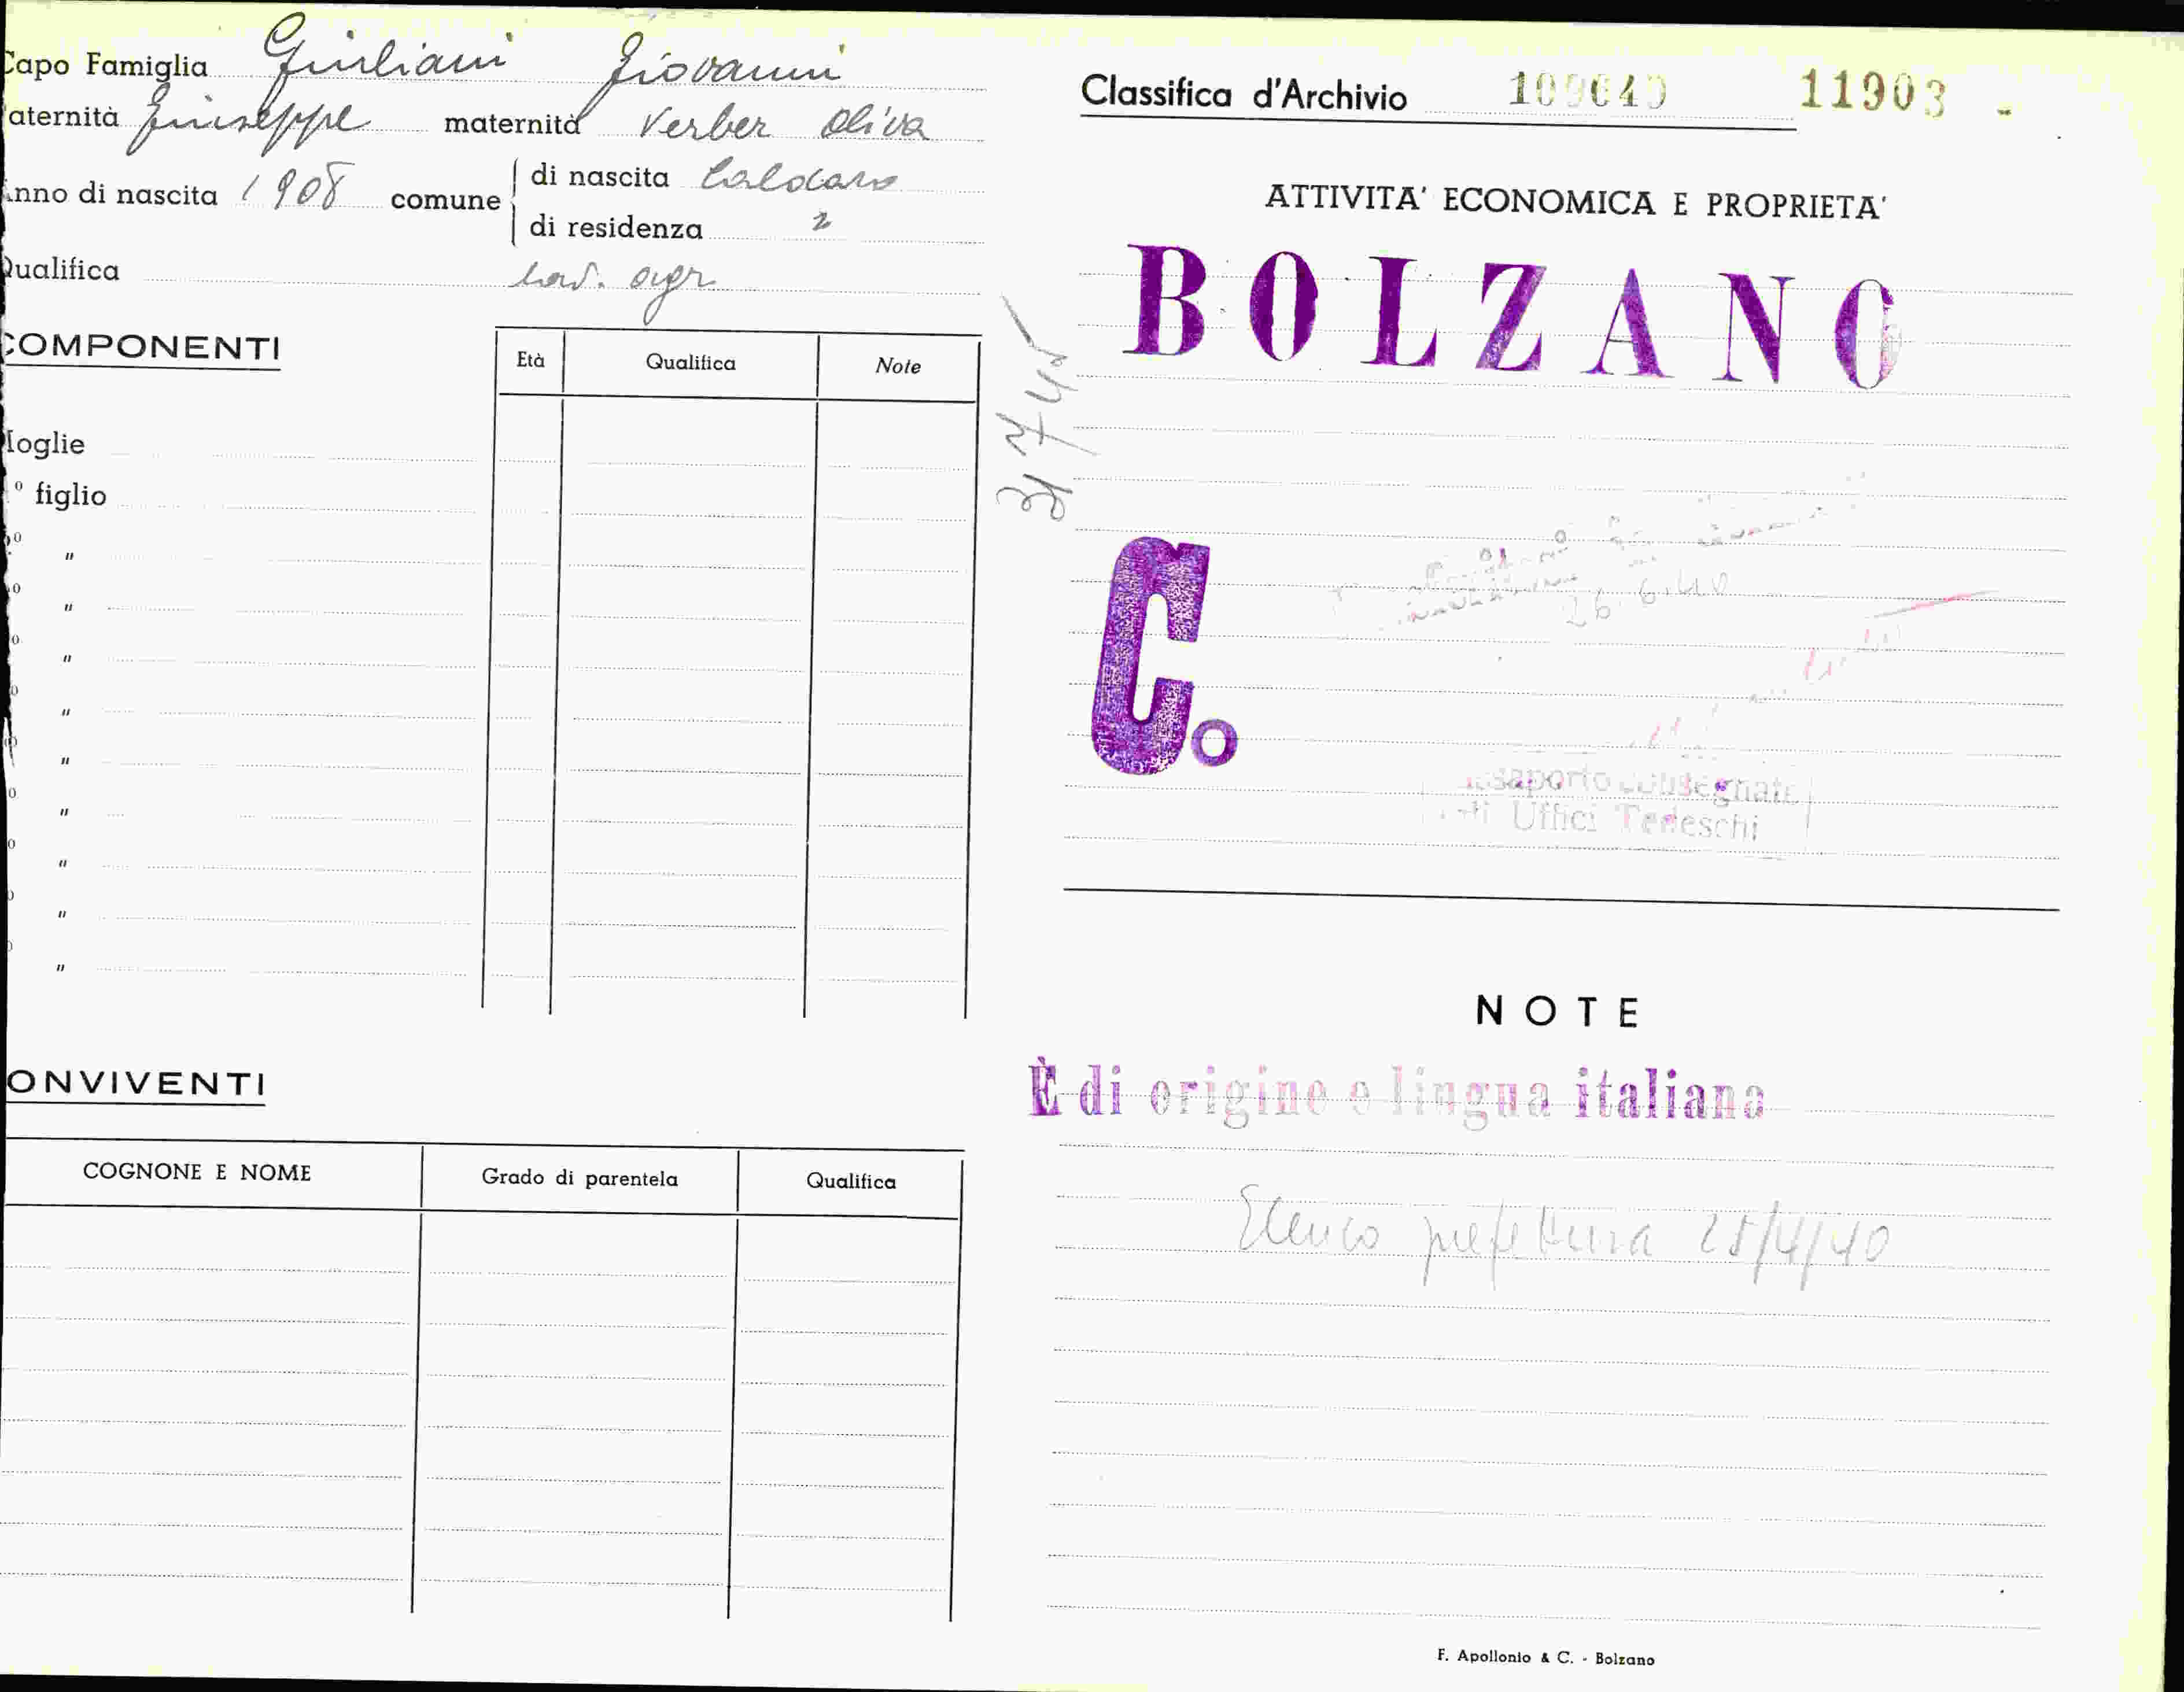 Capo Famiglia Giuliani Giovanni
aternità Giuseppe maternità Verber Oliva
nno di nascita 1908 comune di nascita Caldaro
di residenza "
Qualifica lav. agr.
COMPONENTI
Età Qualifica Note
Moglie
° figlio
° "
° "
° "
° "
° "
° "
° "
° "
° "
ONVIVENTI
COGNONE E NOME Grado di parentela Qualifica
Classifica d'Archivio 109640 11903 -
ATTIVITA' ECONOMICA E PROPRIETA'
BOLZANO
C.
26.6.40
saporto consegnato
Uffici Tedeschi
NOTE
È di origine e lingua italiana
Elenco prefettura 25/4/40
F. Apollonio & C. - Bolzano